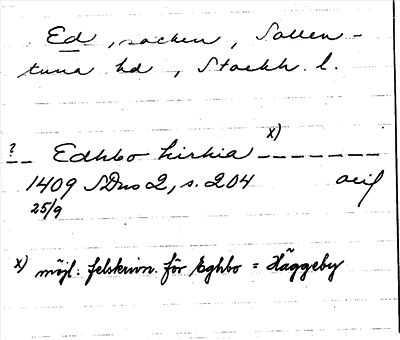 Ed, socken, Sollen-
tuna hd, Stockh. l.
x)
? -- Edhbo kirkia -------
1409 SDns 2, s. 204 avil
25/9
x) möjl. felskrivn. för Eghbo = Häggeby